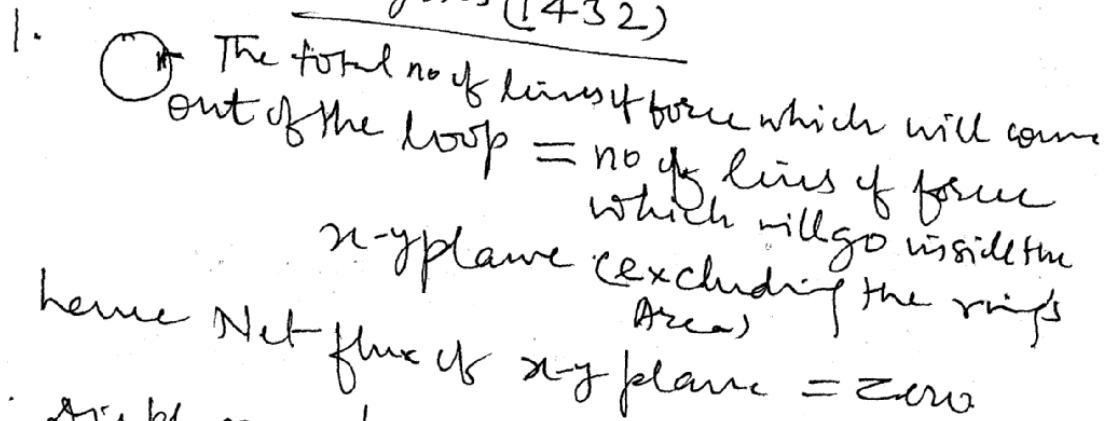 (1432)
1.
The total no of lines of force which will come
out of the loop = no of lines of force
which will go inside the
x-y plane (excluding the ring's
Area)
hence Net flux of x-y plane = Zero